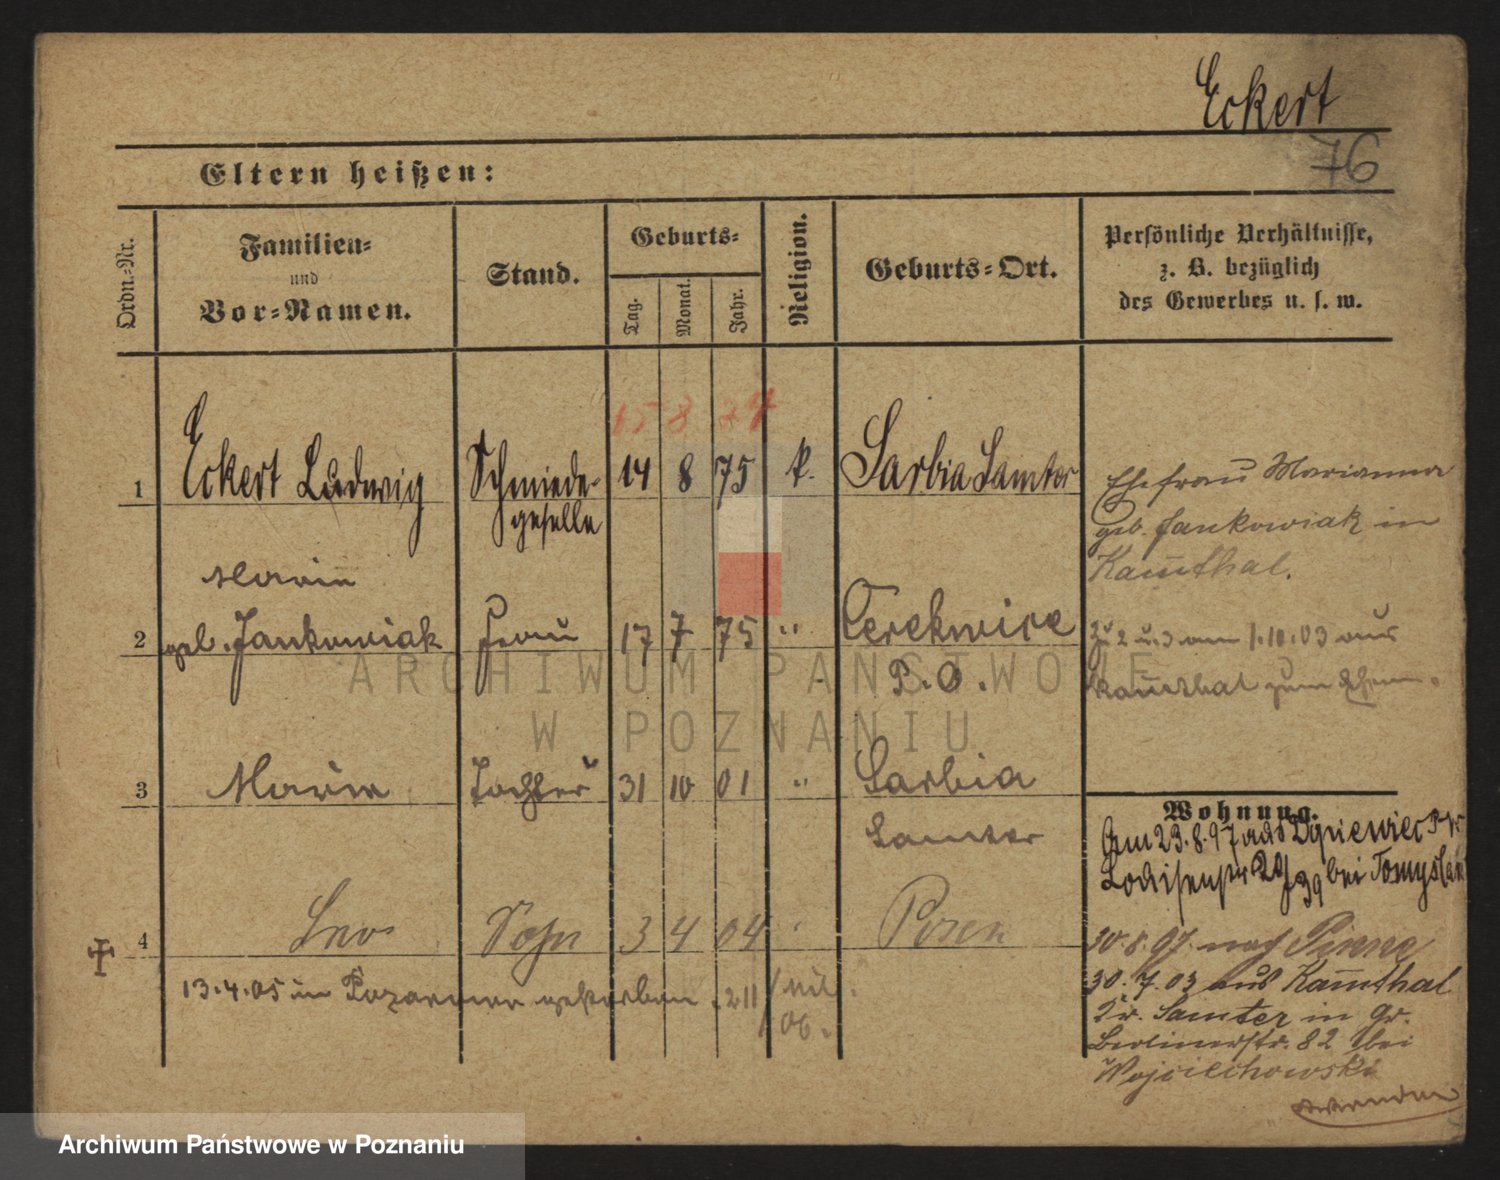 Eckert
76
Eltern heißen:
Ordn.-Nr.
Familien-
und
Vor-Namen.
Stand.
Geburts-
Tag.
Monat.
Jahr.
Religion.
Geburts-Ort.
Persönliche Verhältnisse,
z. B. bezüglich
des Gewerbes u. s. w.
15 8 74
1 Eckert Ludwig Schmiede- 14 8 75 k. Sarbia Samter
geselle
Ehefrau Marianna
geb. Jankowiak in
Kamthal.
Marie
2 geb. Jankowiak Frau 17 7 75 " Cerekwice
P. O.
zu 2 u. 3 am 1.10.03 aus
Kamthal zum Ehem.
ARCHIWUM PAŃSTWOWE
W POZNANIU
3 Marie Tochter 31 10 01 " Sarbia
Samter
Wohnung.
Am 23.8.97 aus
bei
4 Leo Sohn 3 4 04 " Posen
13.4.05 in gestorben. 211
/06.
30.8.97 nach Pinne
30.7.03 aus Kamthal
Kr. Samter in Gr.
Berlinerstr. 82 bei
Wojciechowski
wenden
Archiwum Państwowe w Poznaniu